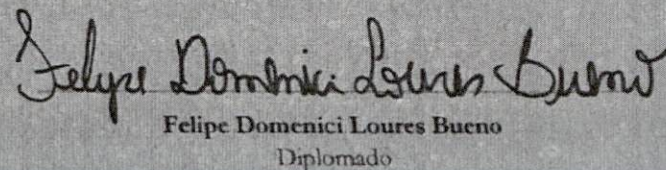 Felipe Domenici Loures Bueno
Felipe Domenici Loures Bueno
Diplomado